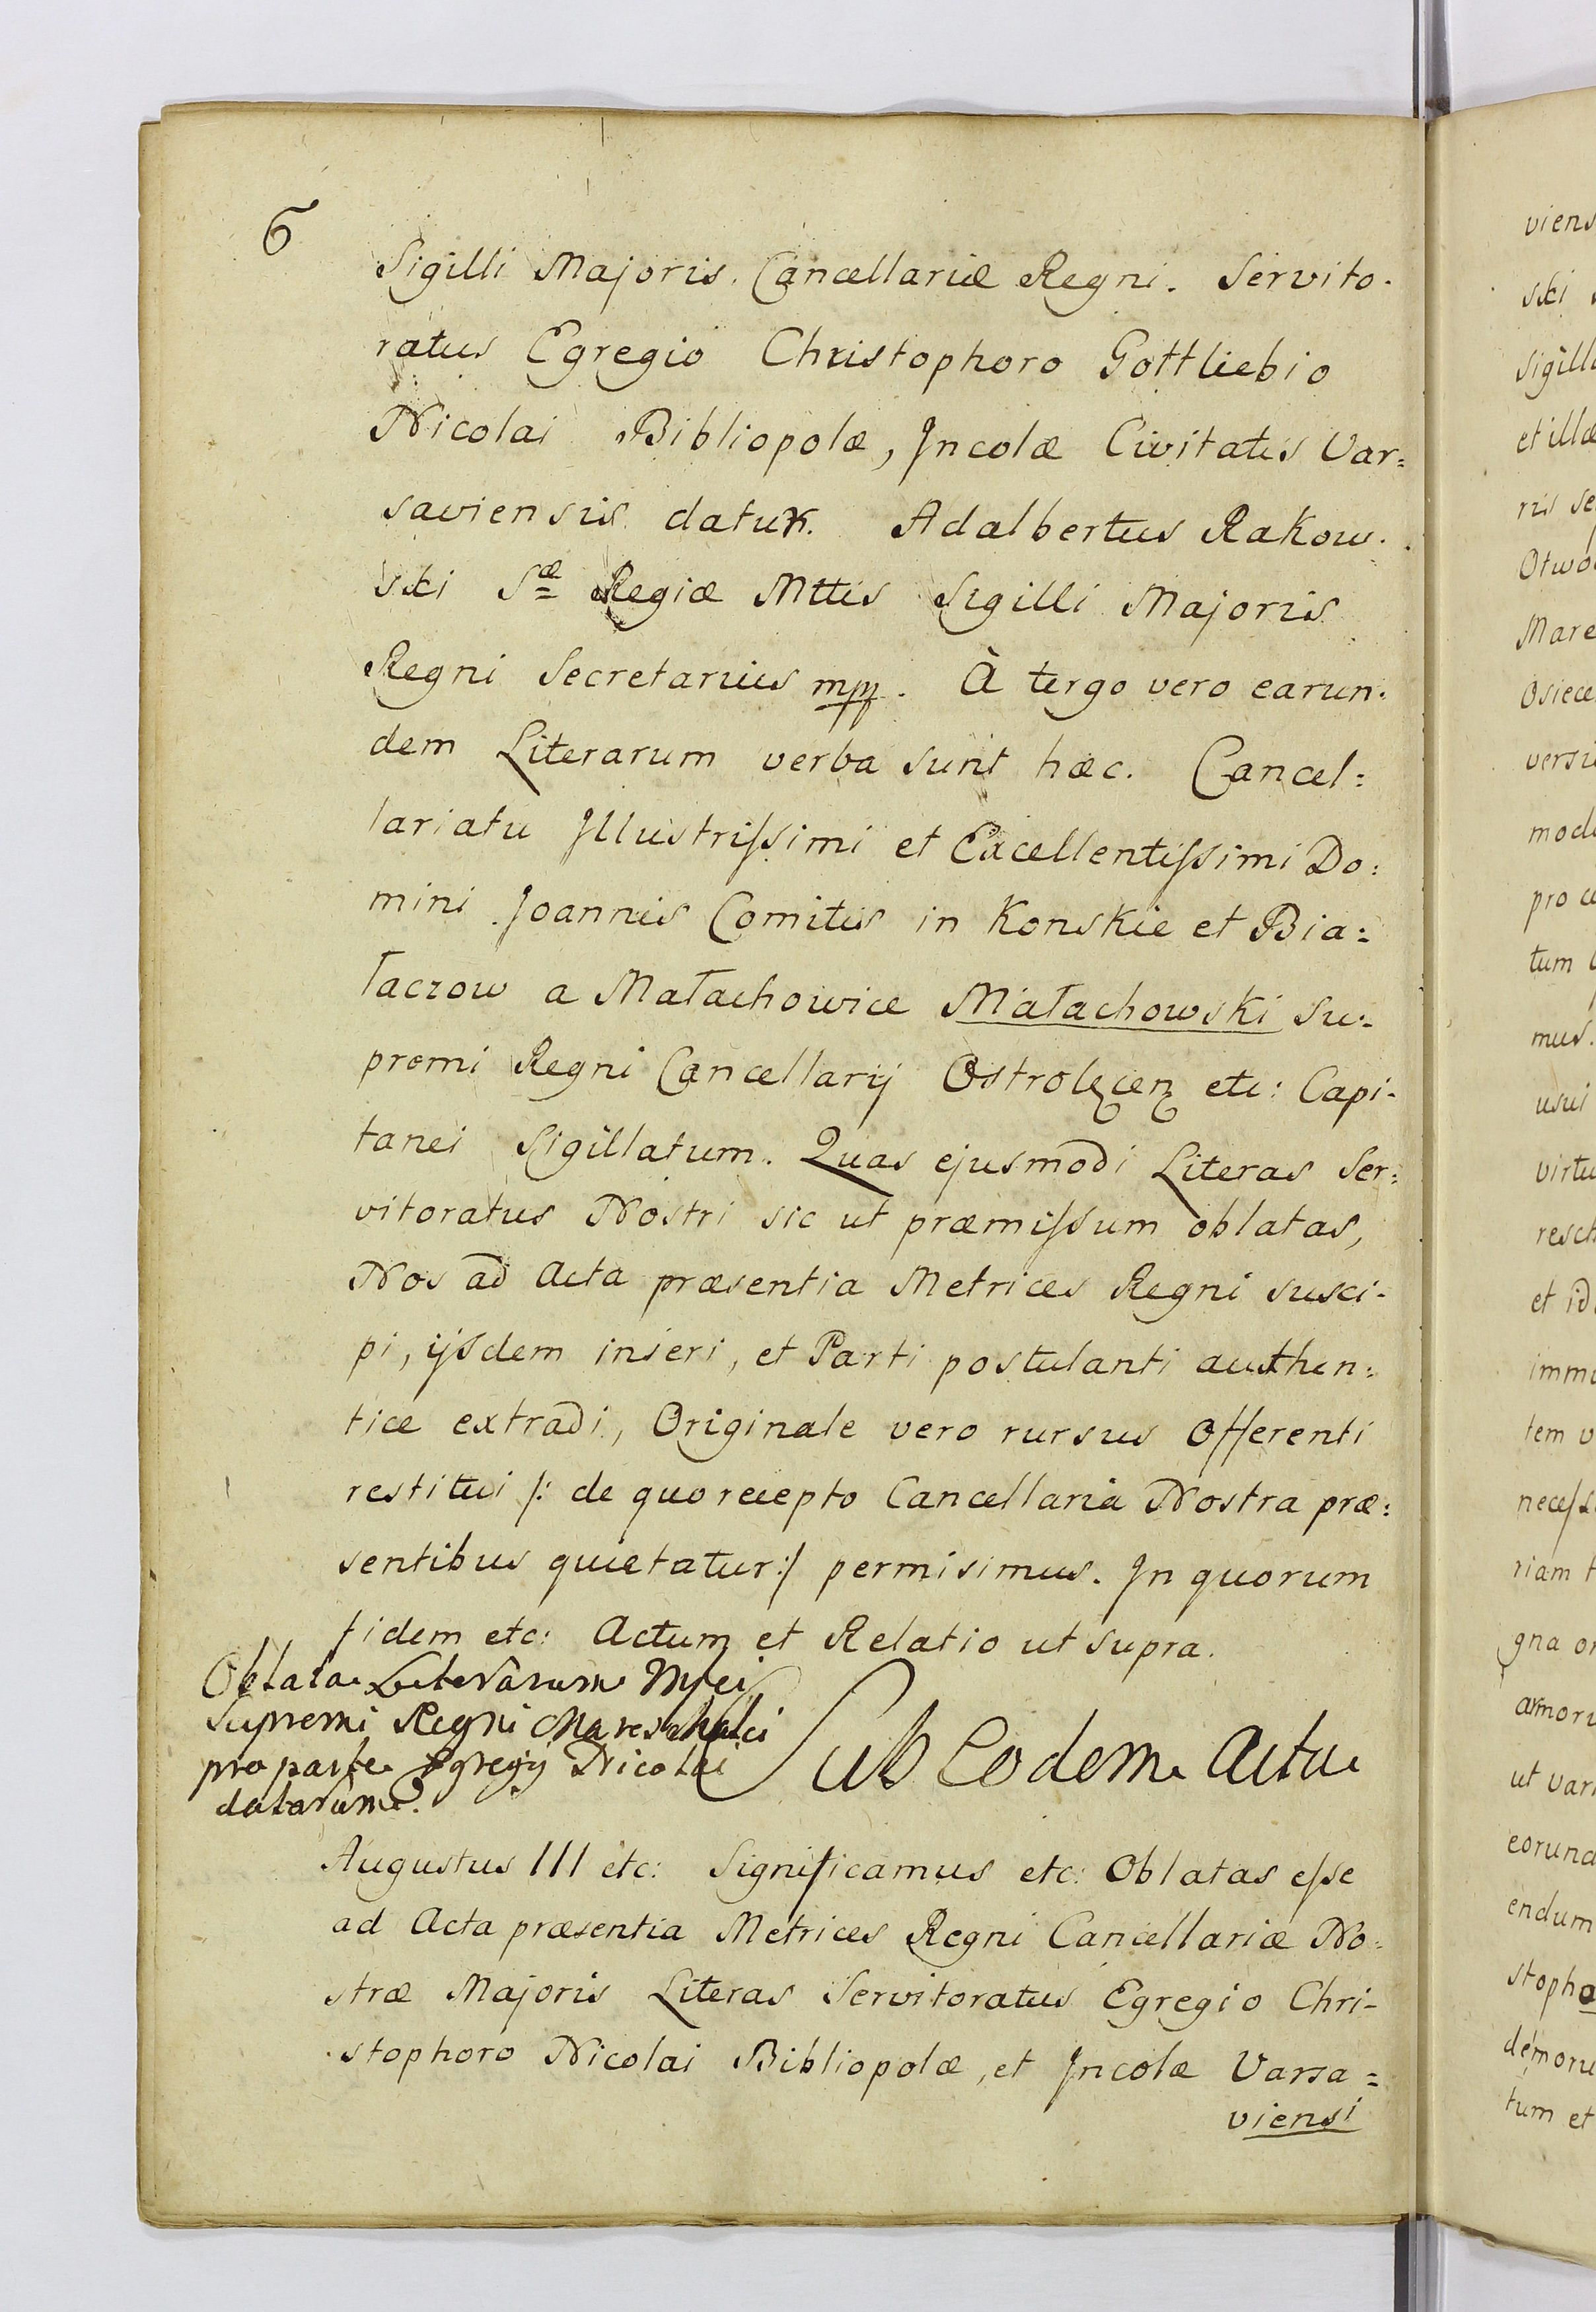 6
Sigilli Majoris. Cancellariæ Regni. Servito-
ratus Egregio Christophoro Gottliebio
Nicolai Bibliopolæ, Incolæ Civitatis Var=
saviensis datur. Adalbertus Rakow-
ski Sæ Regiæ Mttis Sigilli Majoris
Regni Secretarius mpp. À tergo vero earun-
dem Literarum verba sunt hæc. Cancel=
lariatu Illustrissimi et Excellentissimi Do=
mini Joannis Comitis in Konskie et Bia=
łaczow a Małachowice Małachowski Su=
premi Regni Cancellarij Ostrolęcen etc: Capi-
tanei Sigillatum. Quas ejusmodi Literas Ser=
vitoratus Nostri sic ut præmissum oblatas,
Nos ad Acta præsentia Metrices Regni susci-
pi, ijsdem inseri, et Parti postulanti authen=
tice extradi, Originale vero rursus Offerenti
restitui /: de quo recepto Cancellaria Nostra præ=
sentibus quietatur :/ permisimus. In quorum
fidem etc: Actum et Relatio ut supra.
Oblata Literarum
Supremi Regni Mareschalci
pro parte Egregij Nicolai
datarum.
Sub Eodem Actu
Augustus III etc: Significamus etc: Oblatas esse
ad Acta præsentia Metrices Regni Cancellariæ No=
stræ Majoris Literas Servitoratus Egregio Chri-
stophoro Nicolai Bibliopolæ, et Incolæ Varsa=
viensi
viens
ski
Sigill
et illæ
ris se
Otwo
Mare
Osiece
versi
mod
pro c
tum
mus.
usui
virtu
resch
et id
imm
tem v
necess
riam t
gna o
armor
ut var
eorund
endum
stopho
demor
tum et